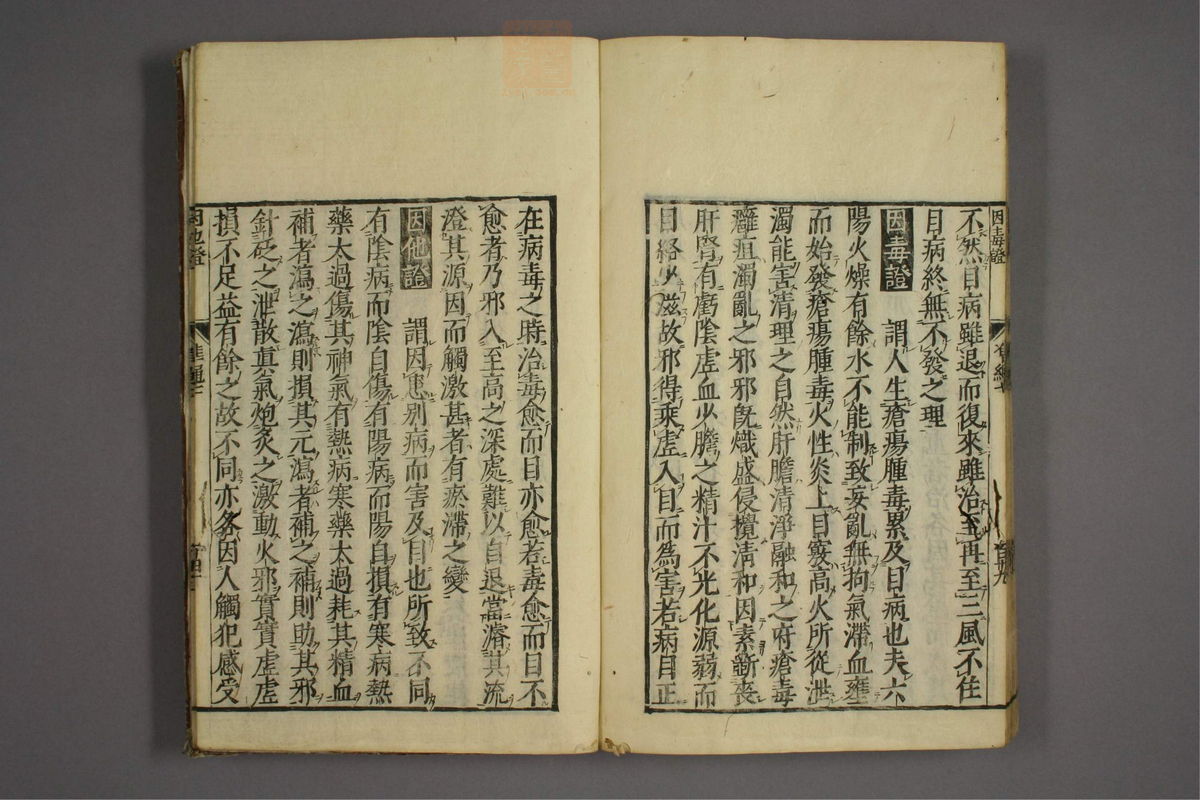 因毒證
不然目病雖退而復來雖治至再至三風不住
目病終無不發之理
因毒證 謂人生瘡瘍腫毒累及目病也夫六
陽火燥有餘水不能制致妄亂無拘氣滯血壅
而始發瘡瘍腫毒火性炎上目竅高火所從泄
濁能害清理之自然肝膽清淨融和之府瘡毒
癰疽濁亂之邪邪旣熾盛侵攪清和因素斵喪
肝腎有虧陰虛血少膽之精汁不光化源弱而
目絡少滋故邪得乘虛入目而為害若病目正
在病毒之時治毒愈而目亦愈若毒愈而目不
愈者乃邪入至高之深處難以自退當濬其流
澄其源因而觸激甚者有瘀滯之變
因他證 謂因患別病而害及目也所致不同
有陰病而陰自傷有陽病而陽自損有寒病熱
藥太過傷其神氣有熱病寒藥太過耗其精血
補者瀉之瀉則損其元瀉者補之補則助其邪
針砭之泄散真氣炮炙之激動火邪實實虛虛
損不足益有餘之故不同亦各因人觸犯感受
因他證